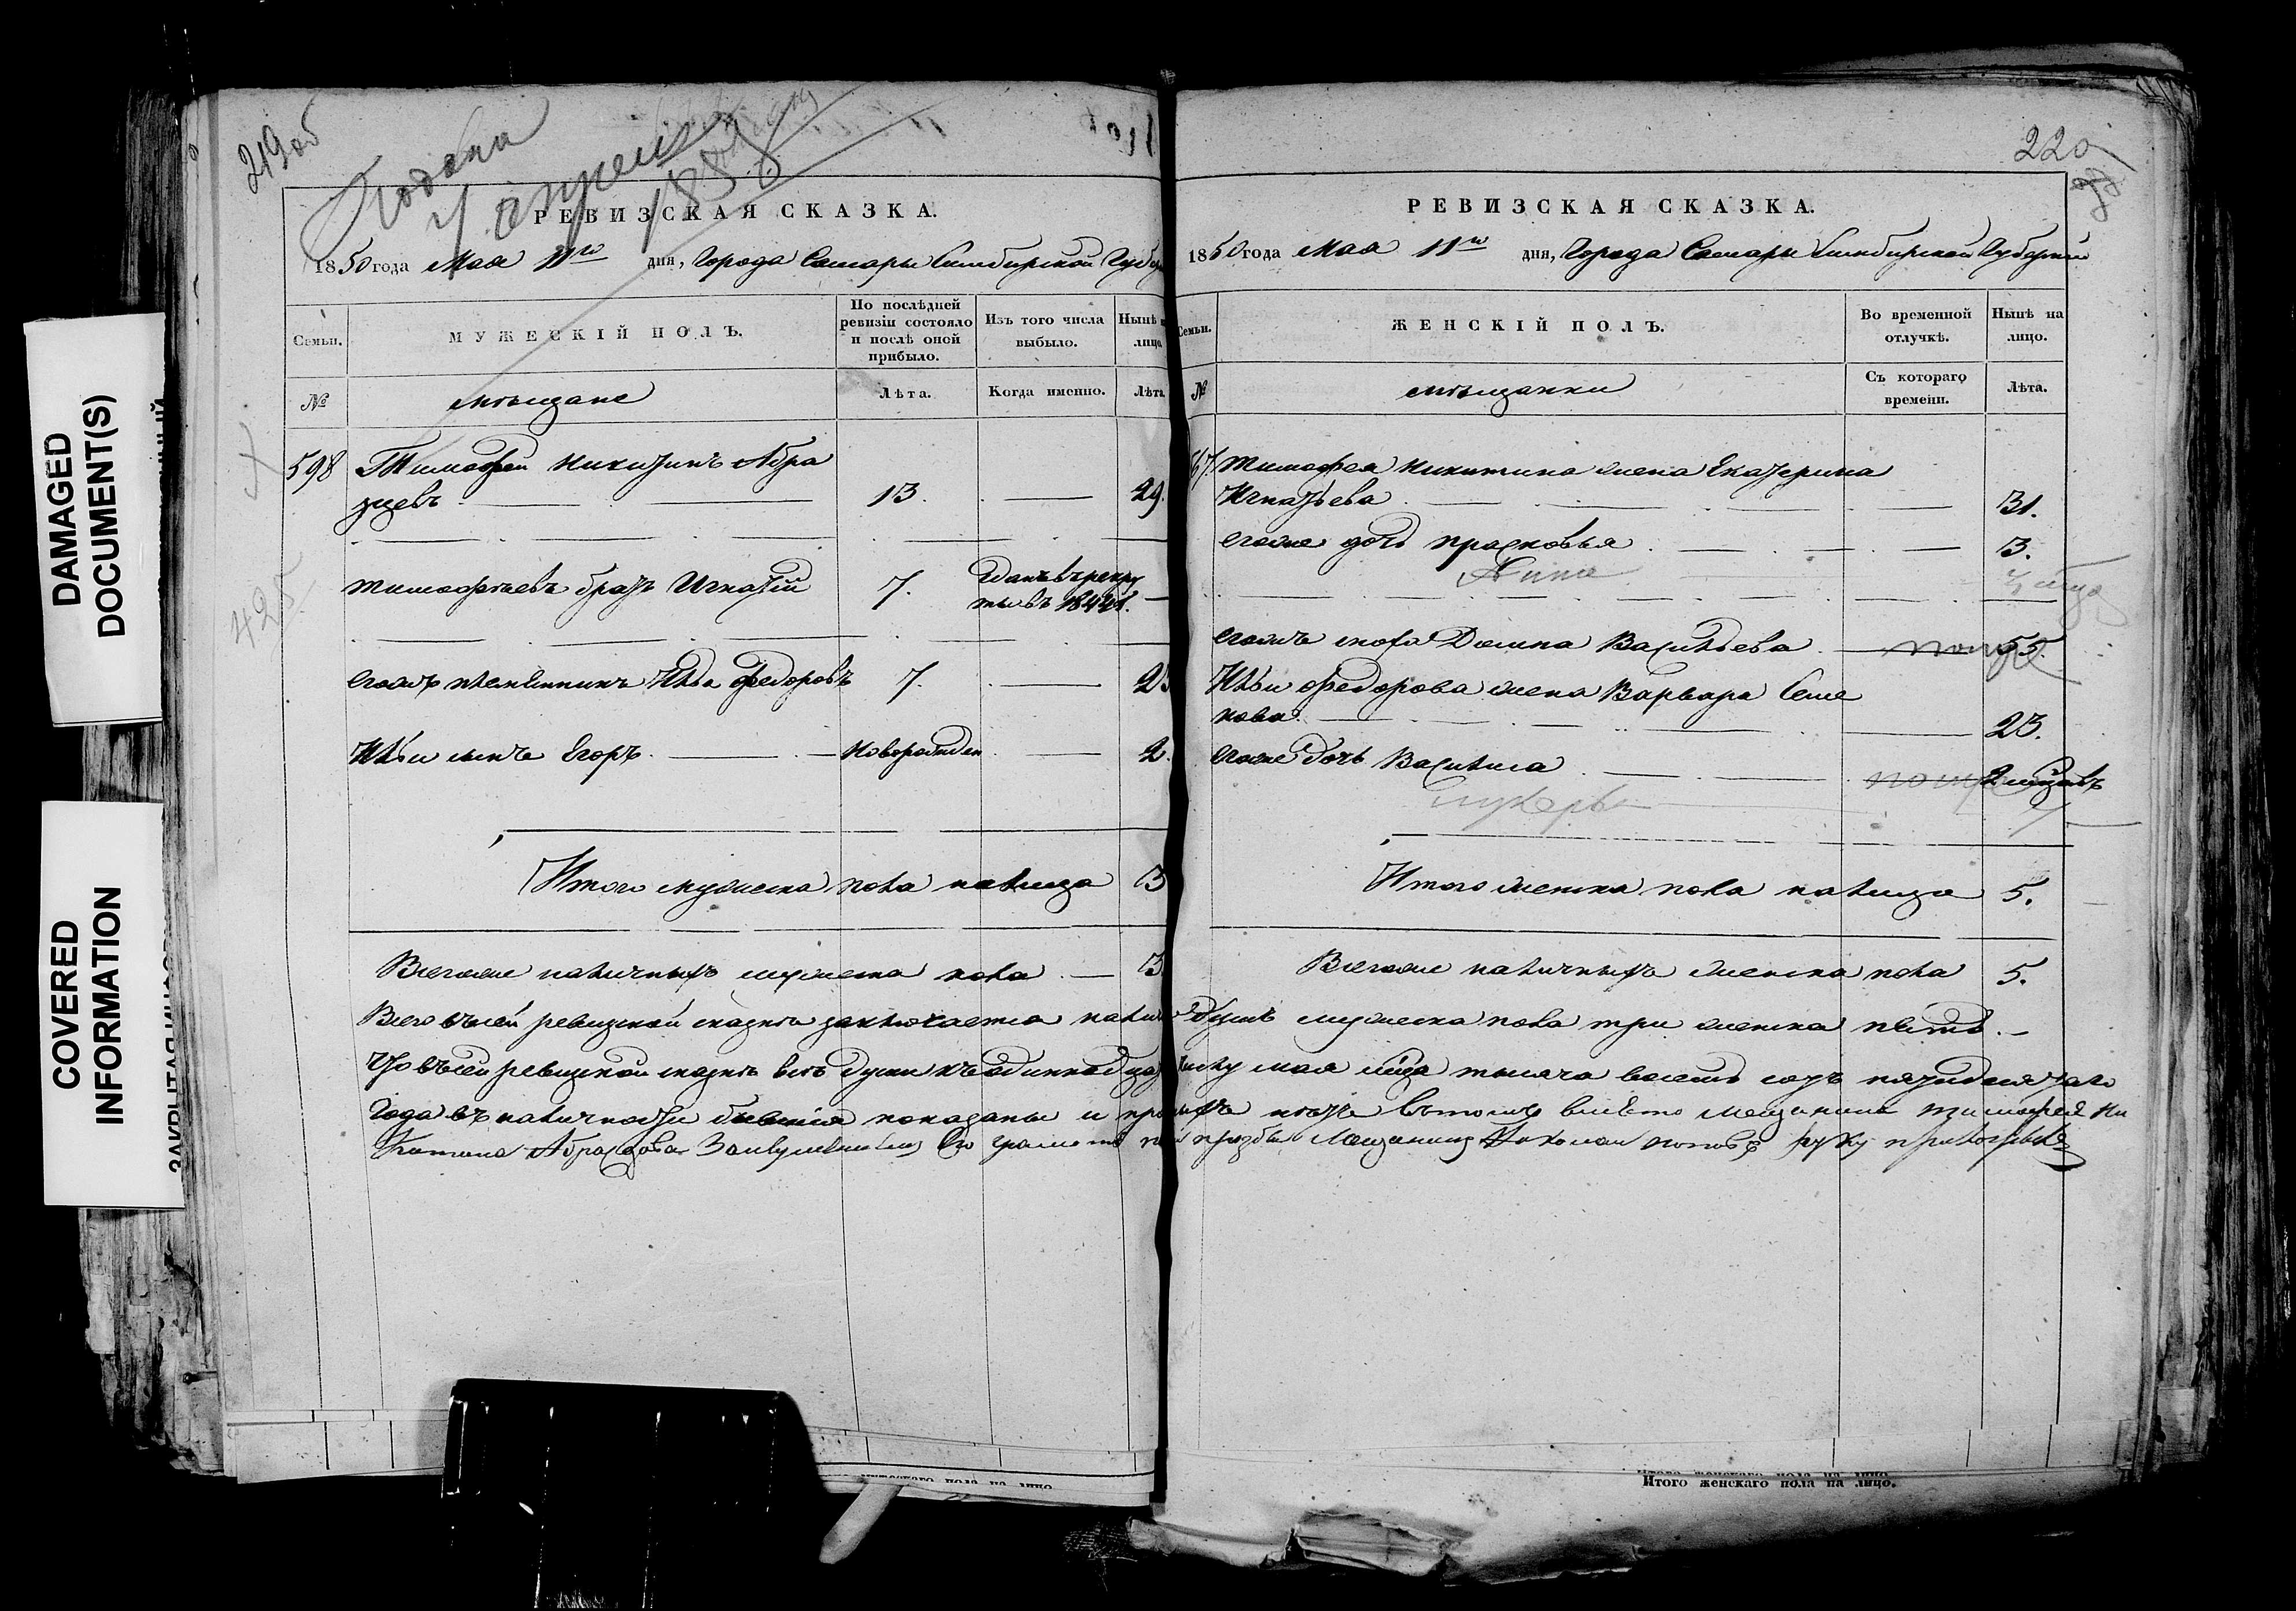 DAMAGED
DOCUMENT(S)
COVERED
INFORMATION
219об
Подана
4 апреля
1858
РЕВИЗСКАЯ СКАЗКА.
1850 года Мая 11го дня, Города Самары Симбирской Губер
Семьи.
МУЖЕСКІЙ ПОЛЪ.
По послѣдней ревизіи состояло и послѣ оной прибыло.
Изъ того числа выбыло.
Нынѣ на лицо
№
мѣщане
Лѣта.
Когда именно.
Лѣта
598 Тимофей Никитинъ Абра
зцевъ 13. 29.
425.
Тимофѣевъ братъ Игнатій 7. Зданъ въ рекру
ты въ 1841.
егожъ племянникъ Илья Федоровъ 7. 23
Ильи сынъ Егоръ новорожден 2.
Итого мужеска пола налицо 3
Всегоже наличныхъ мужеска пола 3
220
РЕВИЗСКАЯ СКАЗКА.
1850 года Мая 11го дня, Города Самары Симбирской Губерніи
Семьи.
ЖЕНСКІЙ ПОЛЪ.
Во временной отлучкѣ.
Нынѣ на лицо.
№
мѣщанки
Съ котораго времени.
Лѣта.
Тимофея Никитина жена Екатерина
Игнатьева 31.
егоже дочь Прасковья 3.
Анна
егожъ мать Домна Васильева 55.
Ильи Федорова жена Варвара Семе
нова 23.
егоже дочь Василиса 2 мѣсяцовъ
Гликерья
Итого женска пола налицо 5.
Всегоже наличныхъ женска пола 5.
Всего въ сей ревизской сказкѣ заключается налицо душъ мужеска пола три женска пять.
Что въ сей ревизской сказкѣ всѣ души къ одиннадцатому числу мая мѣсяца тысяча восемь сотъ пятидесятаго
Года въ наличности бывшія показаны и прописныхъ нѣтъ въ томъ вмѣсто мещанина Тимофея Ни
китина Абразцова За неумениемъ его грамоте по прозбе Мещанинъ Поповъ руку приложилъ
Итого женскаго пола на лицо.